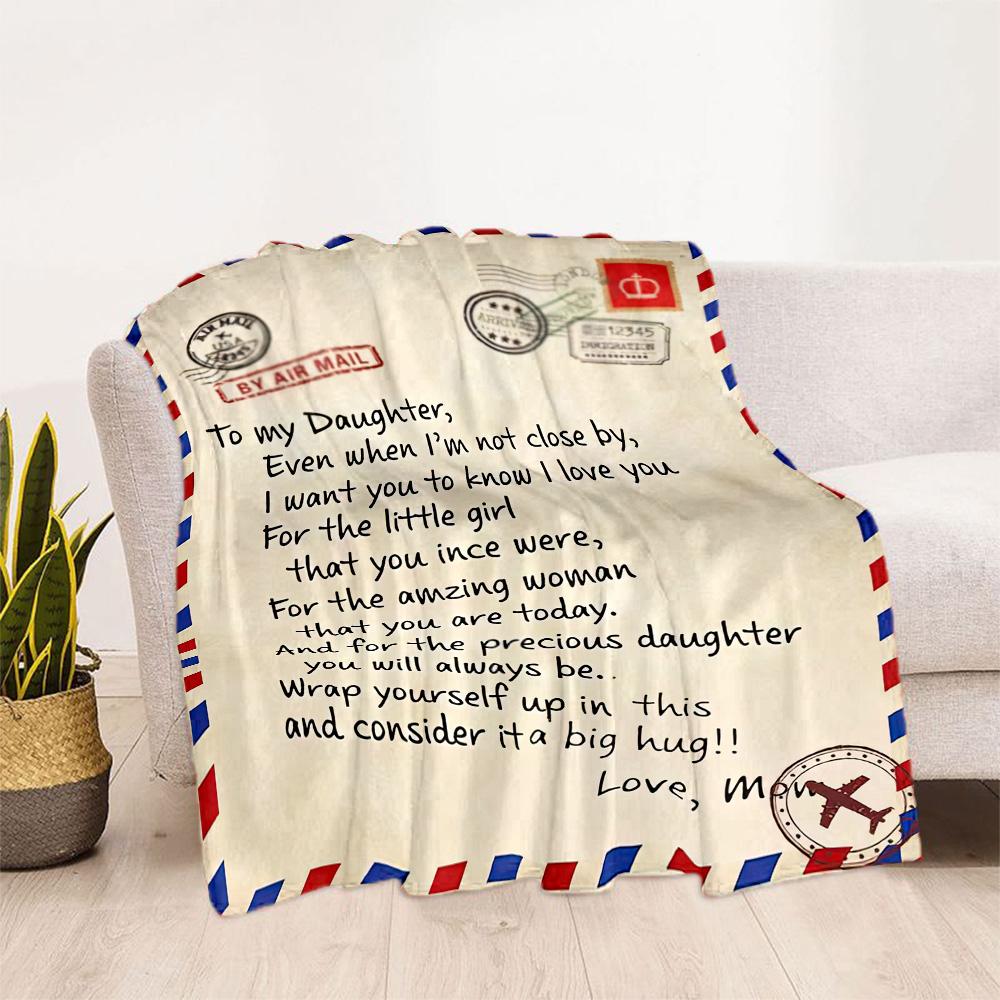 AIR MAIL
USA
BY AIR MAIL
ARRIVE
12345
IMMIGRATION
To my Daughter,
Even when I'm not close by,
I want you to know I love you
For the little girl
that you ince were,
For the amzing woman
that you are today.
And for the precious daughter
you will always be..
Wrap yourself up in this
and consider it a big hug!!
Love, Mom